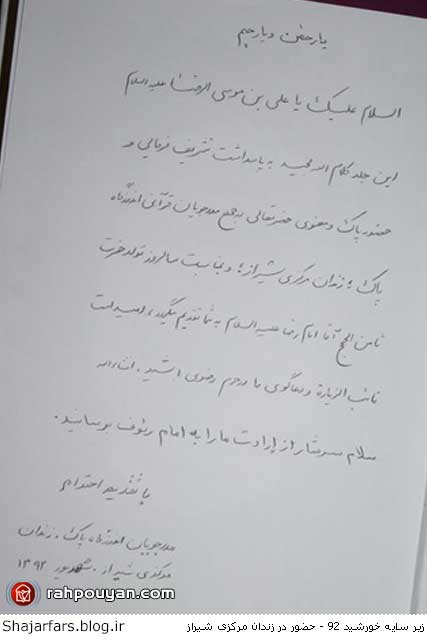 یا رحمن و یا رحیم
السلام علیک یا علی بن موسی الرضا علیه السلام
این جلد کلام الله مجید به پاسداشت تشریف فرمایی و
حضور پاک و معنوی حضرتعالی در جمع مددجویان قرآنی اندرزگاه
پاک زندان مرکزی شیراز و بمناسبت سالروز تولد حضرت
ثامن الحجج آقا امام رضا علیه السلام به شما تقدیم میگردد، امید است
نائب الزیاره و دعاگوی ما در حرم رضوی باشید. انشاءالله
سلام سرشار از ارادت ما را به امام رئوف برسانید.
با تقدیم احترام
مددجویان اندرزگاه پاک زندان
مرکزی شیراز - شهریور ۱۳۹۲
rahpouyan.com
زیر سایه خورشید 92 - حضور در زندان مرکزی شیراز
Shajarfars.blog.ir